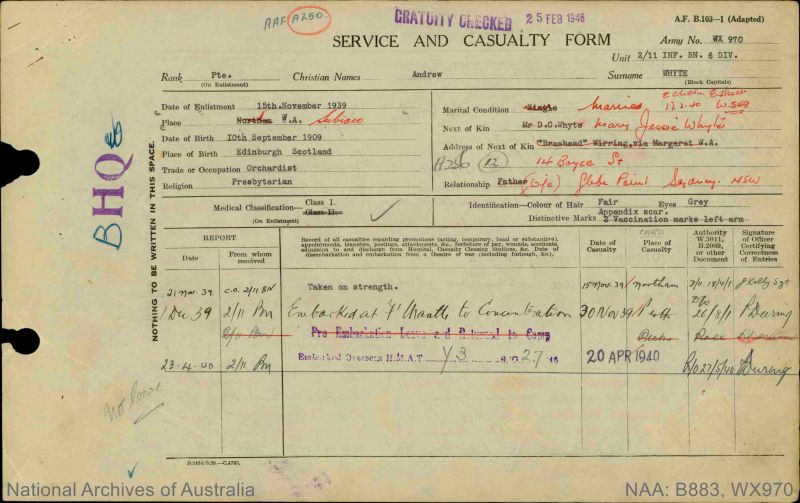 AAF A250.
GRATUITY CHECKED 25 FEB 1946
A.F. B.103—1 (Adapted)
SERVICE AND CASUALTY FORM
Army No. WX 970
Unit 2/11 INF. BN. 6 DIV.
Rank Pte. Christian Names Andrew Surname WHYTE
(On Enlistment) (Block Capitals)
Date of Enlistment 15th.November 1939
Place Northam W.A. Subiaco
Date of Birth 10th September 1909
Place of Birth Edinburgh Scotland
Trade or Occupation Orchardist
Religion Presbyterian
Medical Classification— Class I.
(On Enlistment) Class II.
Marital Condition Single Married 17.2.40 W.548
Next of Kin Mr D.C.Whyte Mary Jessie Whyte
Address of Next of Kin "Braehead" Wirring, via Margaret W.A.
A256 (12) 14 Boyce St
Relationship Father (W/e) Glebe Point Sydney. NSW
Identification—Colour of Hair Fair Eyes Grey
Appendix scar.
Distinctive Marks 2 Vaccination marks left arm
NOTHING TO BE WRITTEN IN THIS SPACE.
BHQ
REPORT
Date
From whom received
Record of all casualties regarding promotions (acting, temporary, local or substantive), appointments, transfers, postings, attachments, &c., forfeiture of pay, wounds, accidents, admission to and discharge from Hospital, Casualty Clearing Stations, &c. Date of disembarkation and embarkation from a theatre of war (including furlough, &c.).
Date of Casualty
CARD
Place of Casualty
Authority W.3011, B.2069, or other Document
Signature of Officer Certifying Correctness of Entries
21 Nov. 39 C.O. 2/11 BN Taken on strength. 15 Nov. 39 Northam P/O 18/4/1 J Kelly Sgt
1 Dec 39 2/11 Bn Embarked at F'Mantle to Concentration 30 Nov 39 P/O 26/5/1 P During
2/11 BN Pre Embarkation Leave and Returned to Camp Perth
23.4.40 2/11 Bn Embarked Overseas H.M.A.T Y3 27 20 APR 1940 R/O 27/5/40 P During
No leave
D.1494/5.39.—C.4785.
National Archives of Australia
NAA: B883, WX970